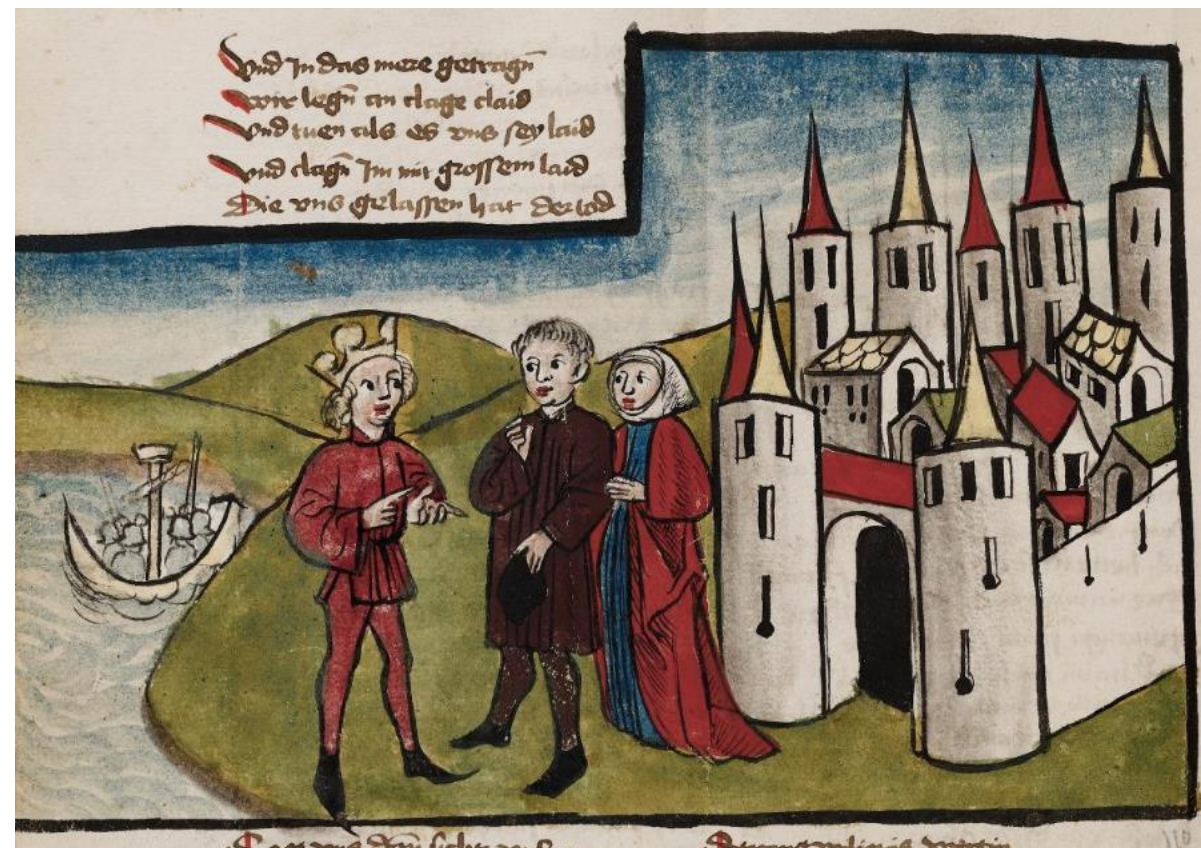 Vnd In das mere getragn̄
wir legn̄ an clage claid
Vnd tuen als es vns sey laid
vnd clagn̄ Im mit grossem laid
Die vns gelassen hat der tod